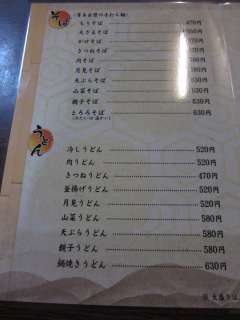 そば
(當店自慢の手打ち麺)
もりそば 470円
天ざるそば
かけそば 470円
きつねそば 520円
肉そば 520円
月見そば 520円
天ぷらそば 630円
山菜そば 630円
親子そば 630円
とろろそば 630円
うどん
冷しうどん 520円
肉うどん 520円
きつねうどん 470円
釜揚げうどん 520円
月見うどん 520円
山菜うどん 580円
天ぷらうどん 580円
親子うどん 580円
鍋焼きうどん 630円
大盛りは